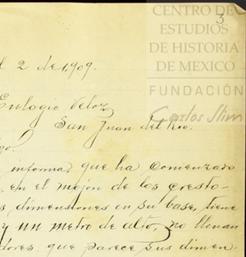 CENTRO DE
ESTUDIOS
DE HISTORIA
DE MEXICO
FUNDACIÓN
Carlos Slim
3
l 2 de 1909.
Eulogio Veloz
San Juan del Rio.
informa que ha comenzado
en el mejor de los
dimensiones en su base, tiene
y un metro de alto, no llenan
dores, que parece sus dimen